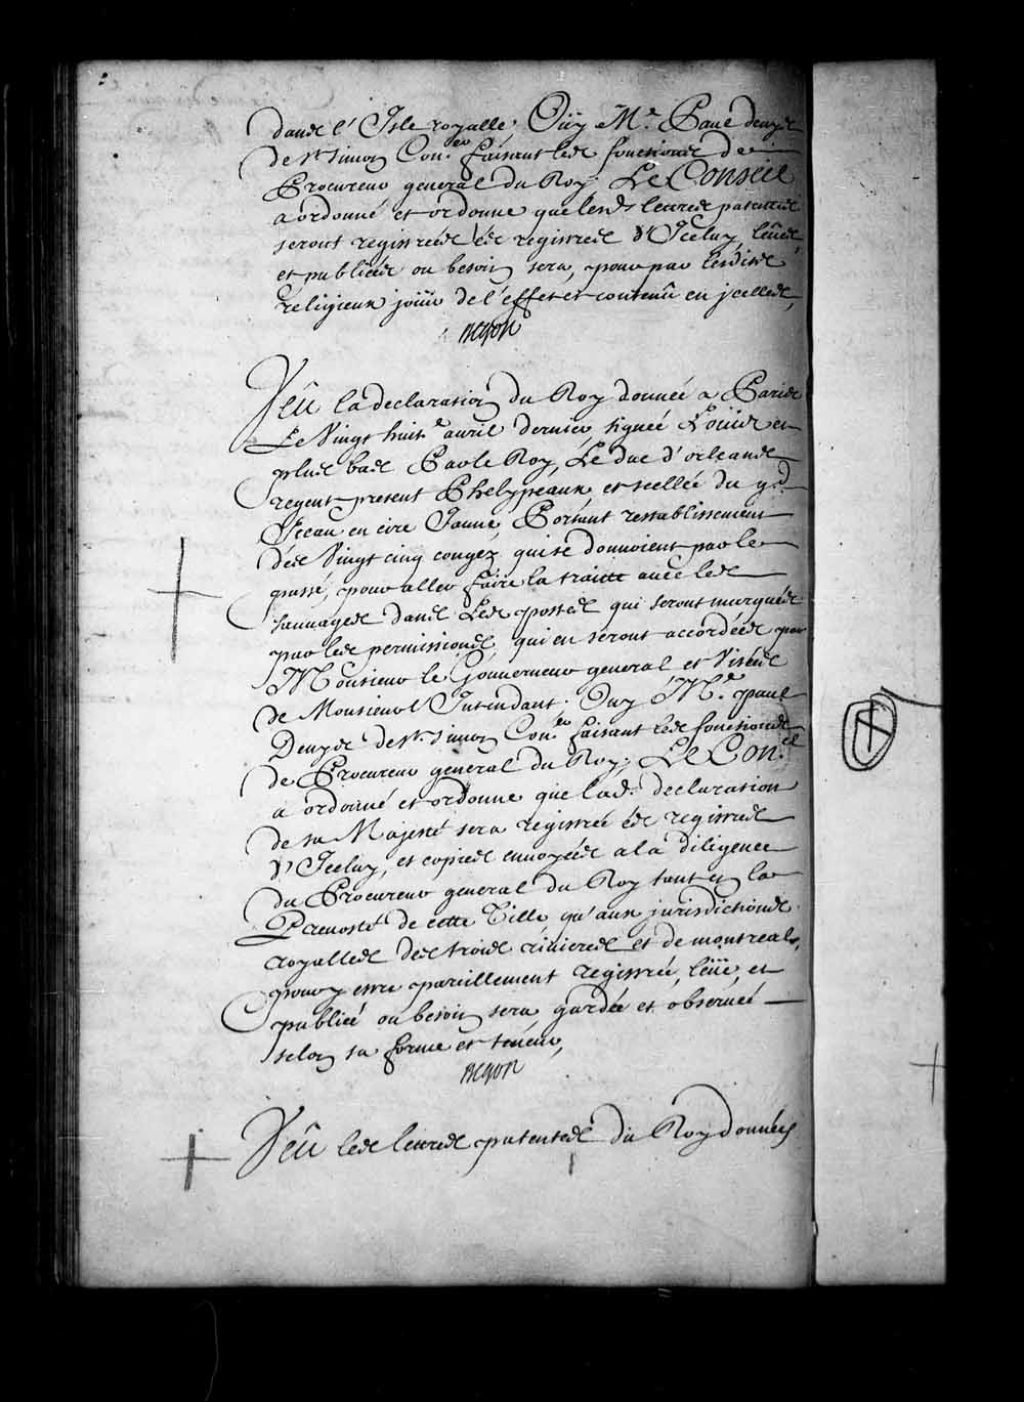 dans l'Isle royalle; Oüy Me. Paul denys
de St. Simon Coner. faisant les fonctions de
Procureur general du Roy; Le Conseil
a ordonné et ordonne que lesds. lettres patentes
seront registrées és registres d'Iceluy, leües
et publiées ou besoin sera, pour par lesdits
religieux joüir de l'effet et contenû en jcelles,
Begon
Veû la declaration du Roy donnée a Paris
Le Vingt huite. avril dernier signée Loüis et
plus bas Par le Roy, Le duc d'orleans
regent present Phelypeaux, et scellée du gd.
Sceau en cire Jaune, Portant restablissement
des Vingt cinq congez qui se donnoient par le
passé, pour aller faire la traitte avec les
sauvages dans Les postes qui seront marquées
par les permissions, qui en seront accordées par
Monsieur le Gouverneur general et Visées
de Monsieur l'Intendant; Ouy Me. paul
Denys de St. Simon Coner. faisant les fonctions
de Procureur general du Roy; Le Conel.
a ordonné et ordonne que lad. declaration
de sa Majesté sera registrée és registres
d'Iceluy, et copies envoyées a la diligence
du Procureur general du Roy tant en la
Prevosté de cette Ville, qu'aux jurisdictions
royalles des trois rivieres et de montreal,
pour y estre pareillement registrée, leüe, et
publiée ou besoin sera, gardée et observée
selon sa forme et teneur,
Begon
Veû les lettres patentes du Roy données